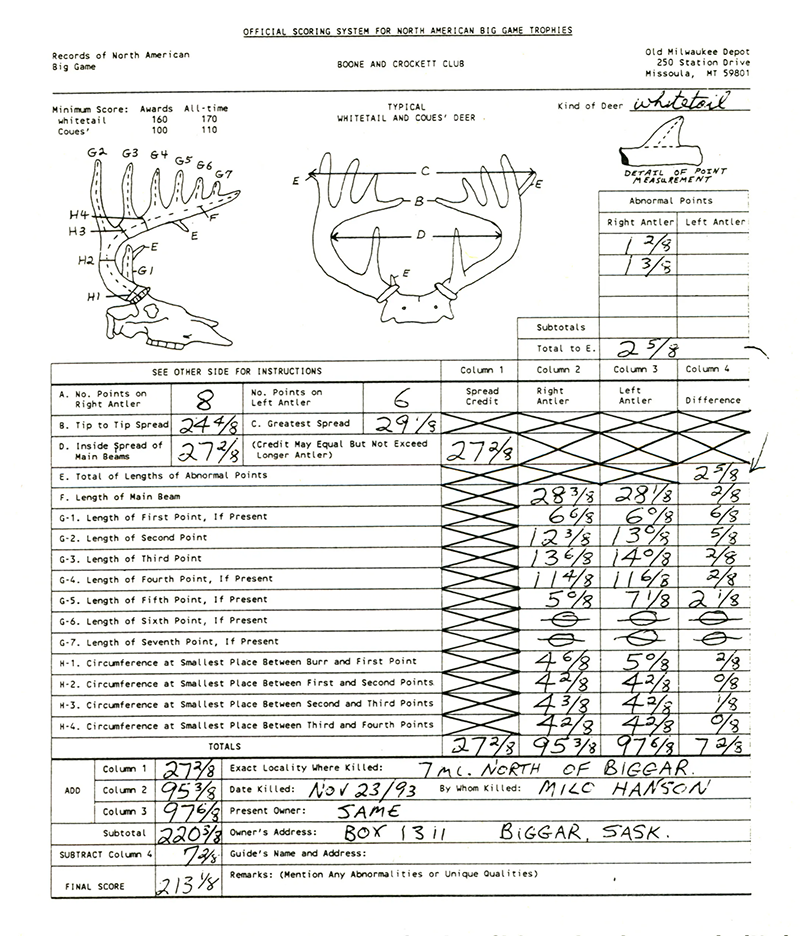 OFFICIAL SCORING SYSTEM FOR NORTH AMERICAN BIG GAME TROPHIES
Records of North American
Big Game
BOONE AND CROCKETT CLUB
Old Milwaukee Depot
250 Station Drive
Missoula, MT 59801
Minimum Score: Awards All-time
whitetail 160 170
Coues' 100 110
TYPICAL
WHITETAIL AND COUES' DEER
Kind of Deer whitetail
G2 G3 G4 G5 G6 G7
H4 H3 H2 H1 F E E G1
E C E
B
D
E
DETAIL OF POINT
MEASUREMENT
Abnormal Points
Right Antler Left Antler
1 2/8
1 3/8
Subtotals
Total to E. 2 5/8
SEE OTHER SIDE FOR INSTRUCTIONS Column 1 Column 2 Column 3 Column 4
A. No. Points on Right Antler 8 No. Points on Left Antler 6 Spread Credit Right Antler Left Antler Difference
B. Tip to Tip Spread 24 4/8 C. Greatest Spread 29 1/8
D. Inside Spread of Main Beams 27 2/8 (Credit May Equal But Not Exceed Longer Antler) 27 2/8
E. Total of Lengths of Abnormal Points 2 5/8
F. Length of Main Beam 28 3/8 28 1/8 2/8
G-1. Length of First Point, If Present 6 6/8 6 0/8 6/8
G-2. Length of Second Point 12 3/8 13 0/8 5/8
G-3. Length of Third Point 13 6/8 14 0/8 2/8
G-4. Length of Fourth Point, If Present 11 4/8 11 6/8 2/8
G-5. Length of Fifth Point, If Present 5 0/8 7 1/8 2 1/8
G-6. Length of Sixth Point, If Present
G-7. Length of Seventh Point, If Present
H-1. Circumference at Smallest Place Between Burr and First Point 4 6/8 5 0/8 2/8
H-2. Circumference at Smallest Place Between First and Second Points 4 2/8 4 2/8 0/8
H-3. Circumference at Smallest Place Between Second and Third Points 4 3/8 4 2/8 1/8
H-4. Circumference at Smallest Place Between Third and Fourth Points 4 2/8 4 2/8 0/8
TOTALS 27 2/8 95 3/8 97 6/8 7 2/8
ADD Column 1 27 2/8 Exact Locality Where Killed: 7 mi. NORTH OF BIGGAR.
Column 2 95 3/8 Date Killed: NOV 23/93 By Whom Killed: MILO HANSON
Column 3 97 6/8 Present Owner: SAME
Subtotal 220 3/8 Owner's Address: BOX 1311 BIGGAR, SASK.
SUBTRACT Column 4 7 2/8 Guide's Name and Address:
FINAL SCORE 213 1/8 Remarks: (Mention Any Abnormalities or Unique Qualities)